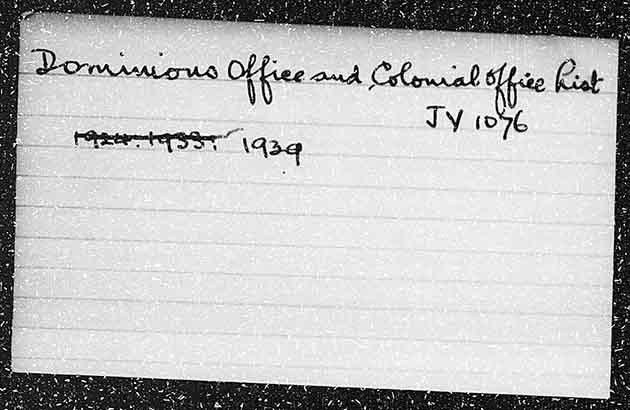 Dominions Office and Colonial Office List
JV 1076
1924. 1933. 1939